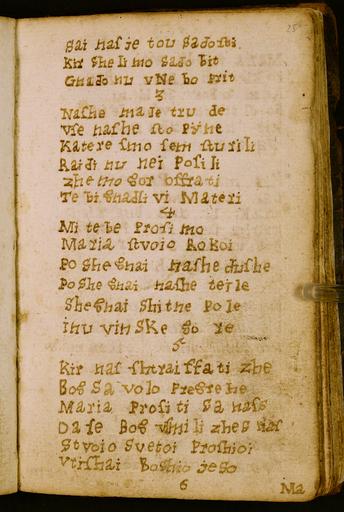 Gai nas je tou Sadosti
Kir She li mo Sado bit
Gnado nu vNe bo Prit
3
Nashe maJe tru de
Vse nashe sto Pyne
Katere smo sem sturili
Raidi nu nei Posili
zhe mo gor offrati
Te bi Gnadlivi Materi
4
Mi te be Prosi mo
Maria stvoio Rokoi
Po She Gnai nashe dushe
Po She Gnai nashe teile
SheGnai Shitne Pole
inu vinSKe go re
5
Kir nas shtraiffati zhe
Bog Sa volo Pregrehe
Maria Prosi ti Sa nass
Da se Bog vsmili zhes nas
Stvoio Svetoi Proshioi
Vtishai Boshio jeso
6
Ma
25